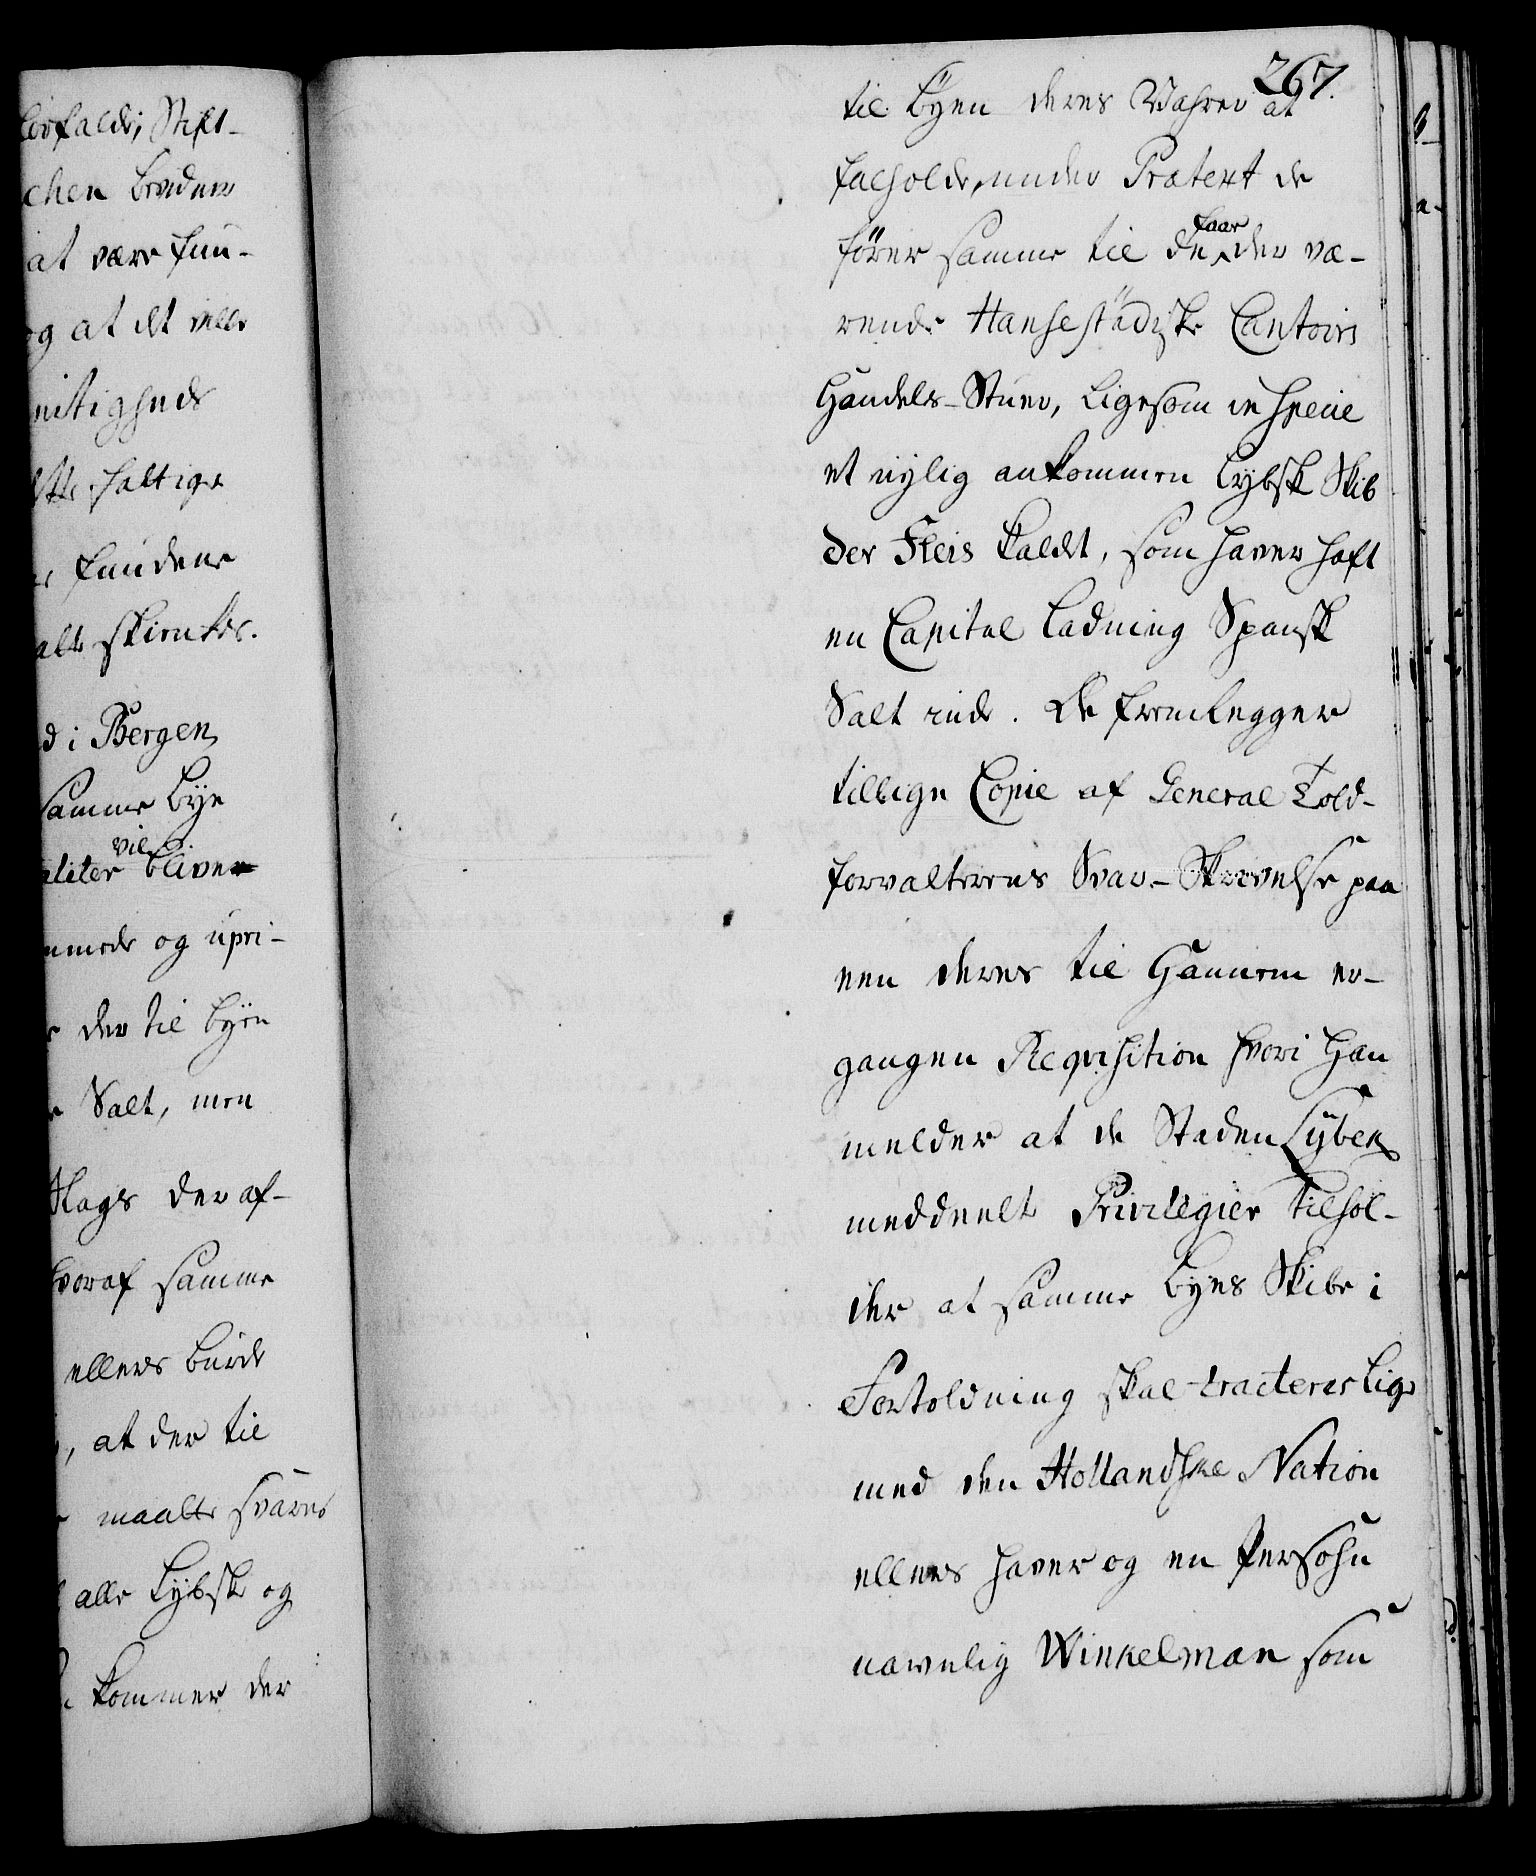 267.
til Byen deres Wahrer at
falholde, under Prætext de
fører samme til de faae der væ-
rende Hansestädiske Cantoirs
Handels-Stuer, ligesom in specie
et nylig ankommen Lybsk Skib
der Fleis kaldet, som haver haft
en Capital Ladning Spansk
Salt inde. De fremlegger
tillige Copie af General Told-
forvalterens Svar-Skrivelse paa
een deres til Hannem er-
gangen Reqvisition hvori Han
melder at de Staden Lybek
meddeelte Privilegier tilhol-
der at samme Byes Skibe i
Fortoldning skal tracteres lige
med den Hollandske Nation
ellers haver og en Persohn
navnlig Winkelman som
Forfald; Stift-
chen braden
at være fun-
og at det ville
haltige
fundene
alt skienkes.
i Bergen
samme Bye
vil
bliver
og upri-
der til Byen
Salt, men
Slags der af-
hvoraf samme
ellers burde
, at der til
maalte svares
alle Lybske og
kommer der